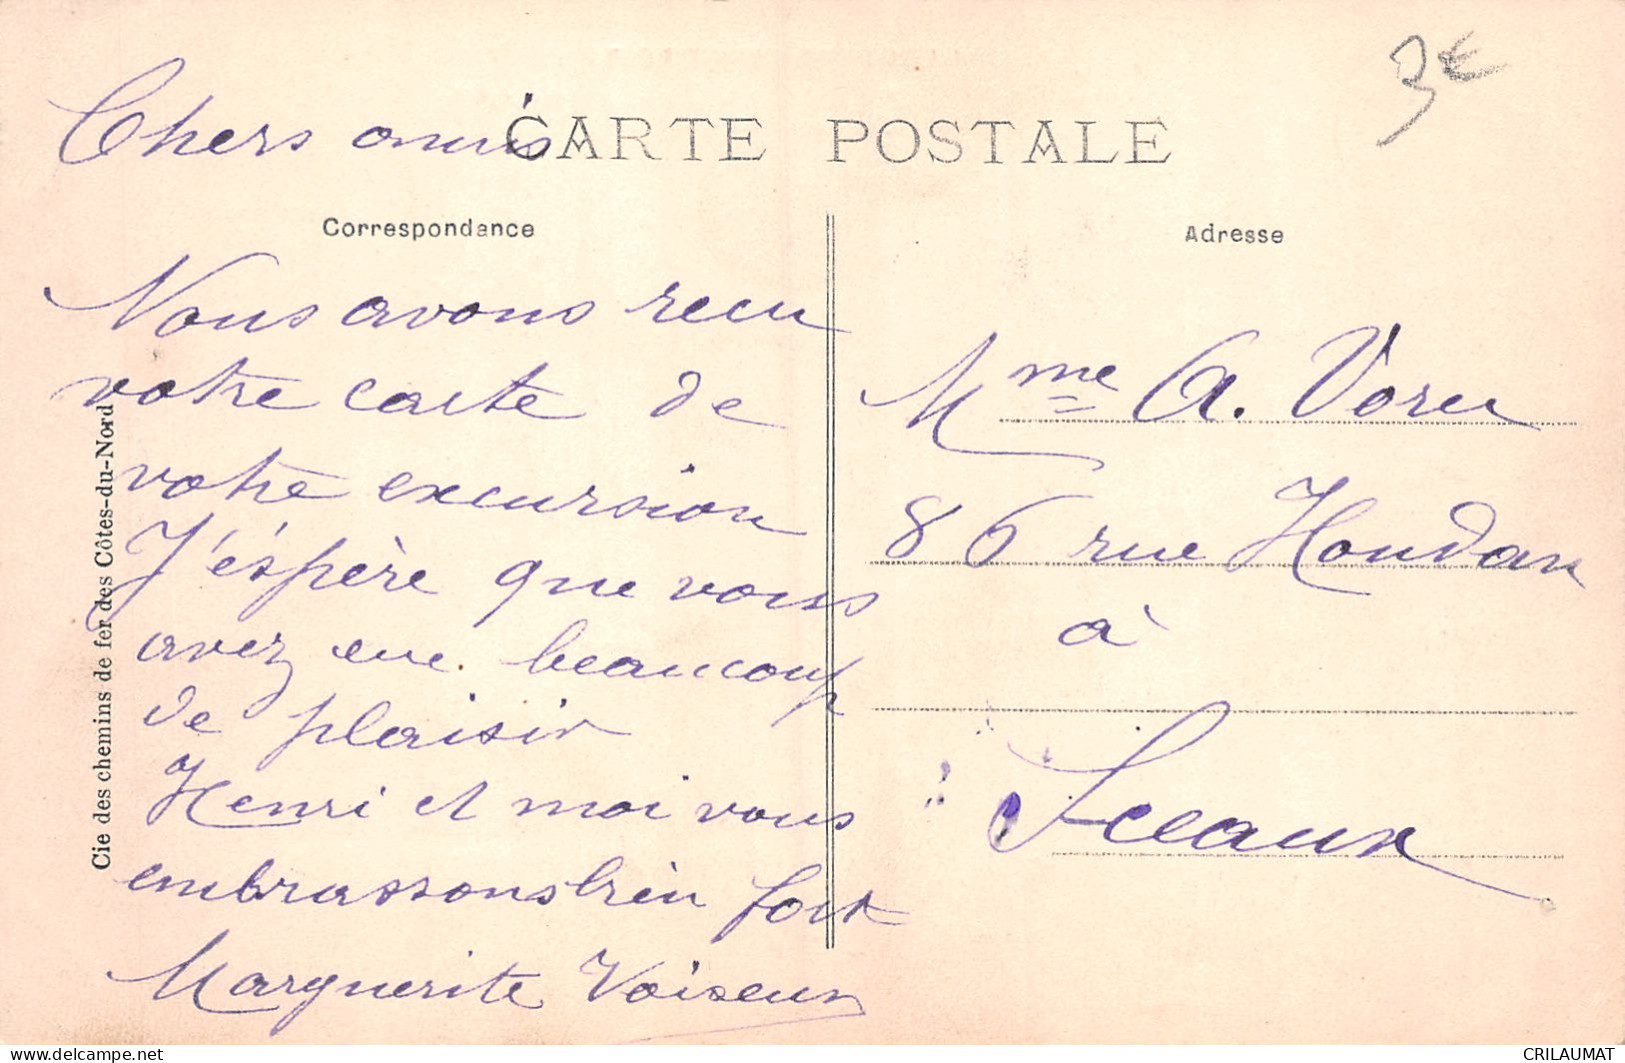 3€
CARTE POSTALE
Chers amis
Correspondance
Nous avons recu
votre carte de
votre excursion
J'éspère que vous
avez eue beaucoup
de plaisir
Henri et moi vous
embrassons bien fort
Marguerite Voiseux
Adresse
Mme A. Voru
86 rue Houdan
à
Sceaux
Cie des chemins de fer des Côtes-du-Nord
delcampe.net
CRILAUMAT